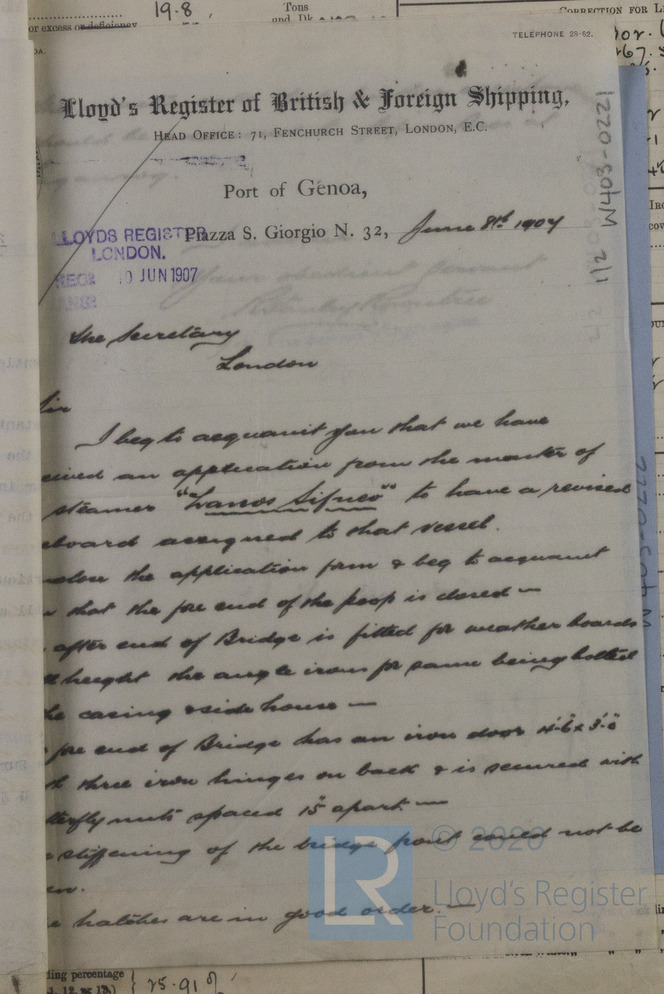 19.8
Tons
CORRECTION FOR
or excess or deficiency
TELEPHONE 28-62.
Lloyd's Register of British & Foreign Shipping,
HEAD OFFICE: 71, FENCHURCH STREET, LONDON, E.C.
Port of Genoa,
Piazza S. Giorgio N. 32, June 8th 1907
LLOYDS REGISTER
LONDON.
REC'D 10 JUN 1907
W403-0221
1/2
The Secretary
London
Sir
I beg to acquaint you that we have
eived an application from the master of
steamer "Lanos Sifneo" to have a revised
eboard assigned to that vessel.
nclose the application form & beg to acquaint
that the fore end of the poop is closed —
after end of Bridge is fitted for weather boards
height the angle irons for same being bolted
he casing & side house —
fore end of Bridge has an iron door 4'-6" x 3'-0"
h three iron hinges on back & is secured with
tterfly nuts spaced 15" apart. —
e stiffening of the bridge front could not be
en.
e hatches are in good order. —
W403-0222
LR
© 2020
Lloyd's Register
Foundation
ding percentage
25.91 %